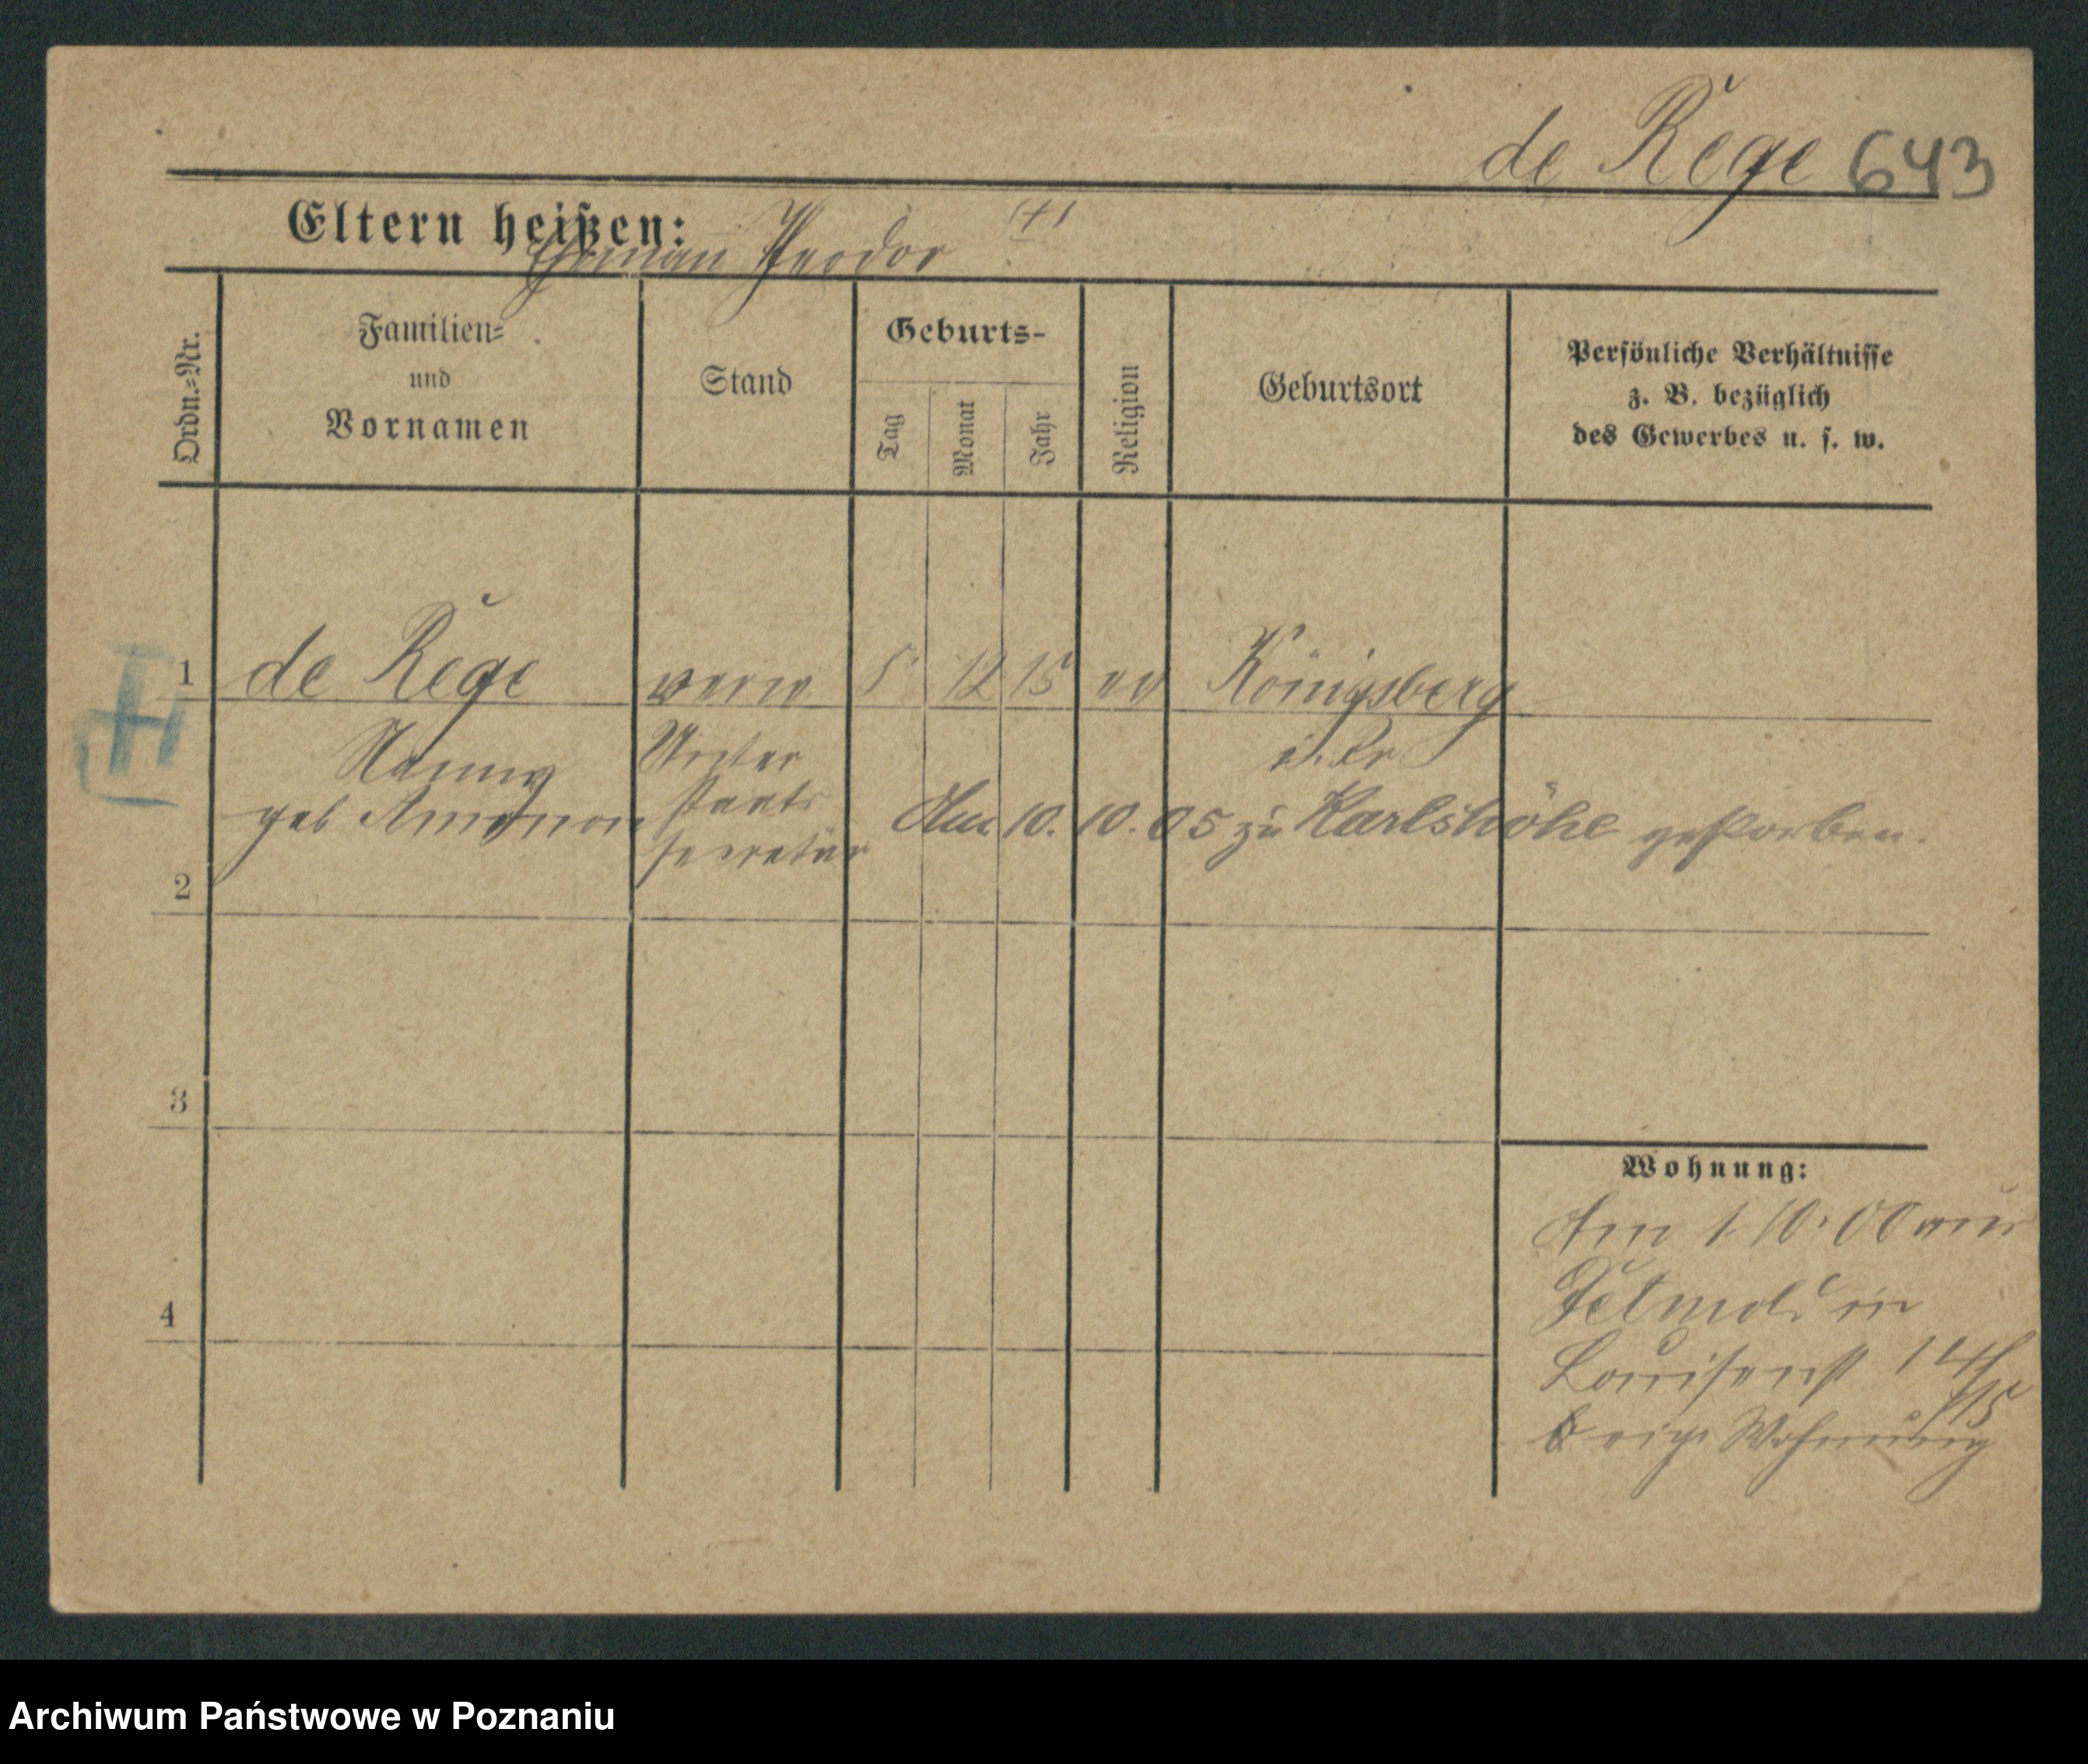 de Rège 643
Eltern heißen:
Theodor (†)
Ordn.=Nr.
Familien=
und
Vornamen
Stand
Geburts-
Tag
Monat
Jahr
Religion
Geburtsort
Persönliche Verhältnisse
z. B. bezüglich
des Gewerbes u. s. w.
1 de Rège verw 8 12 15 ev Königsberg
Nanny Unter i. Pr
geb staats
secretär
Am 10. 10. 05 zu Karlshöhe gestorben.
2
3
4
Wohnung:
Am 1.10.00 aus
Detmold in
Louisenst 14/15
eig. Wohnung
Archiwum Państwowe w Poznaniu